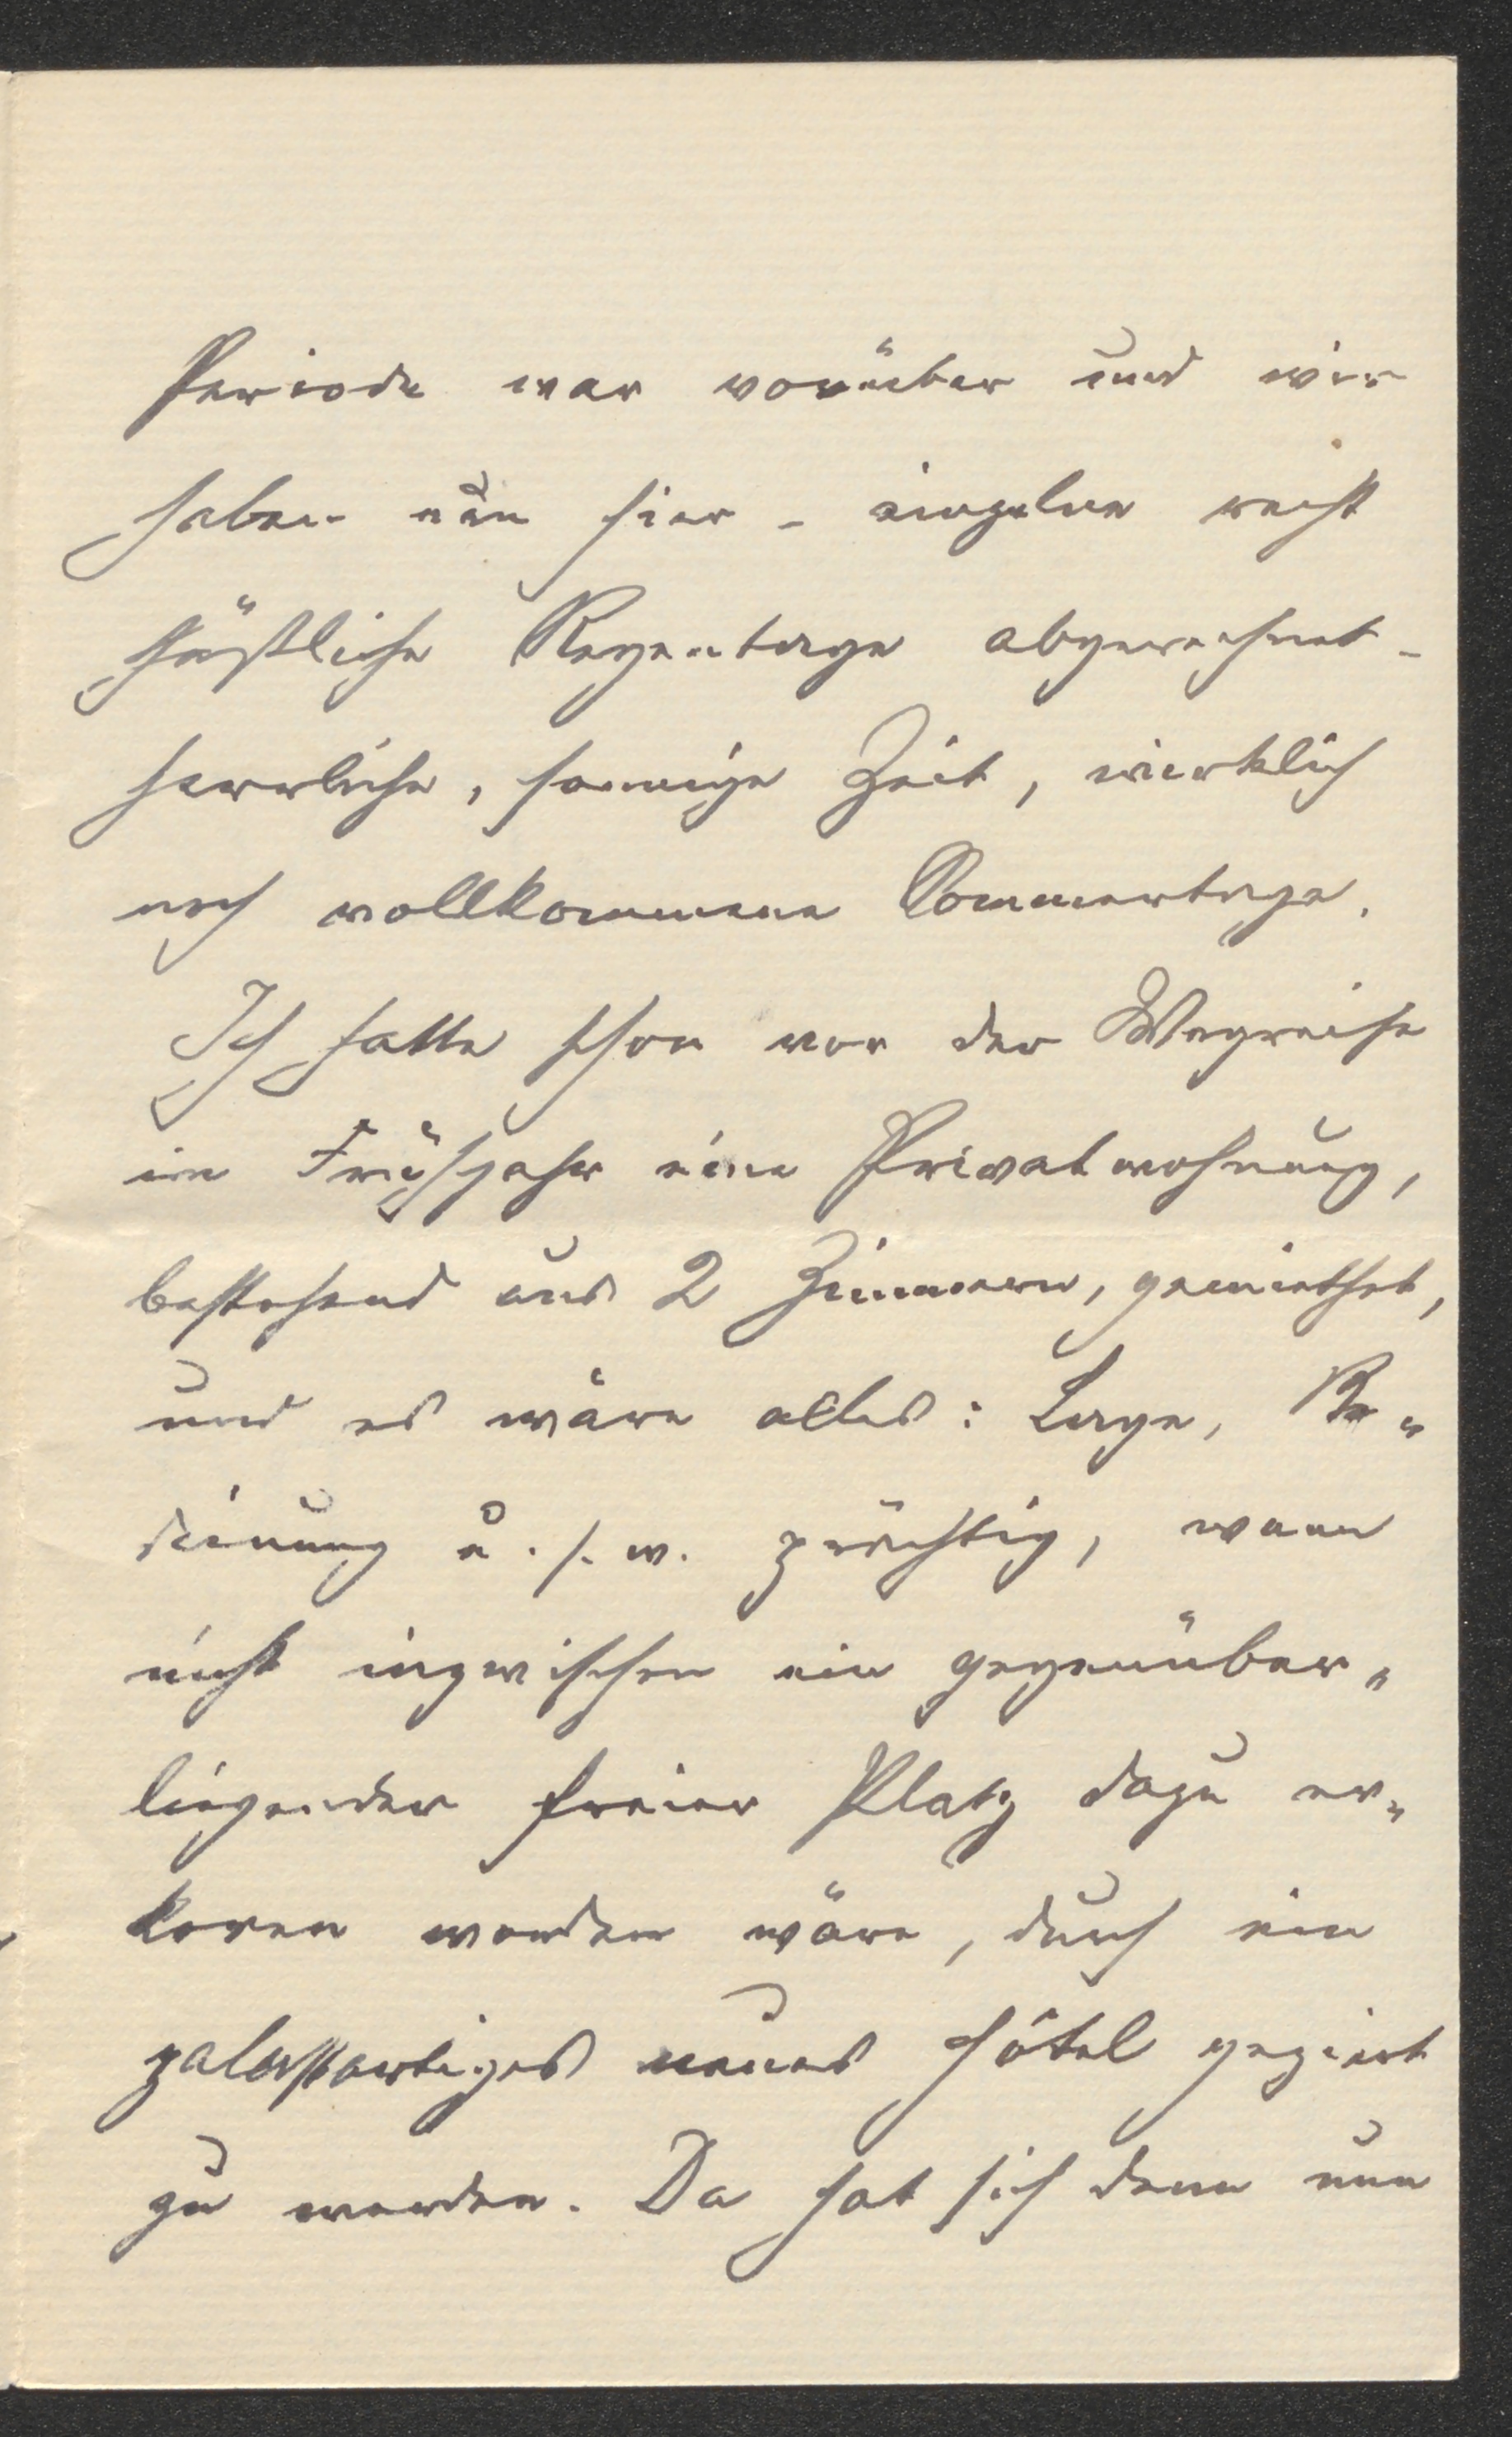 Periode war vorüber und wir
haben nun hier - einzelne recht
häßliche Regentage abgerechnet -
herrliche, sonnige Zeit, wirklich
noch vollkommene Sommertage.
Ich hatte schon vor der Wegreise
im Frühjahr eine Privatwohnung,
bestehend aus 2 Zimmern, gemiethet,
und es wäre alles: Lage, Be„
dienung u. s. w. prächtig, wenn
nicht inzwischen ein gegenüber„
liegender freier Platz dazu er„
koren worden wäre, durch ein
palastartiges neues Hôtel geziert
zu werden. Da hat sich denn nun